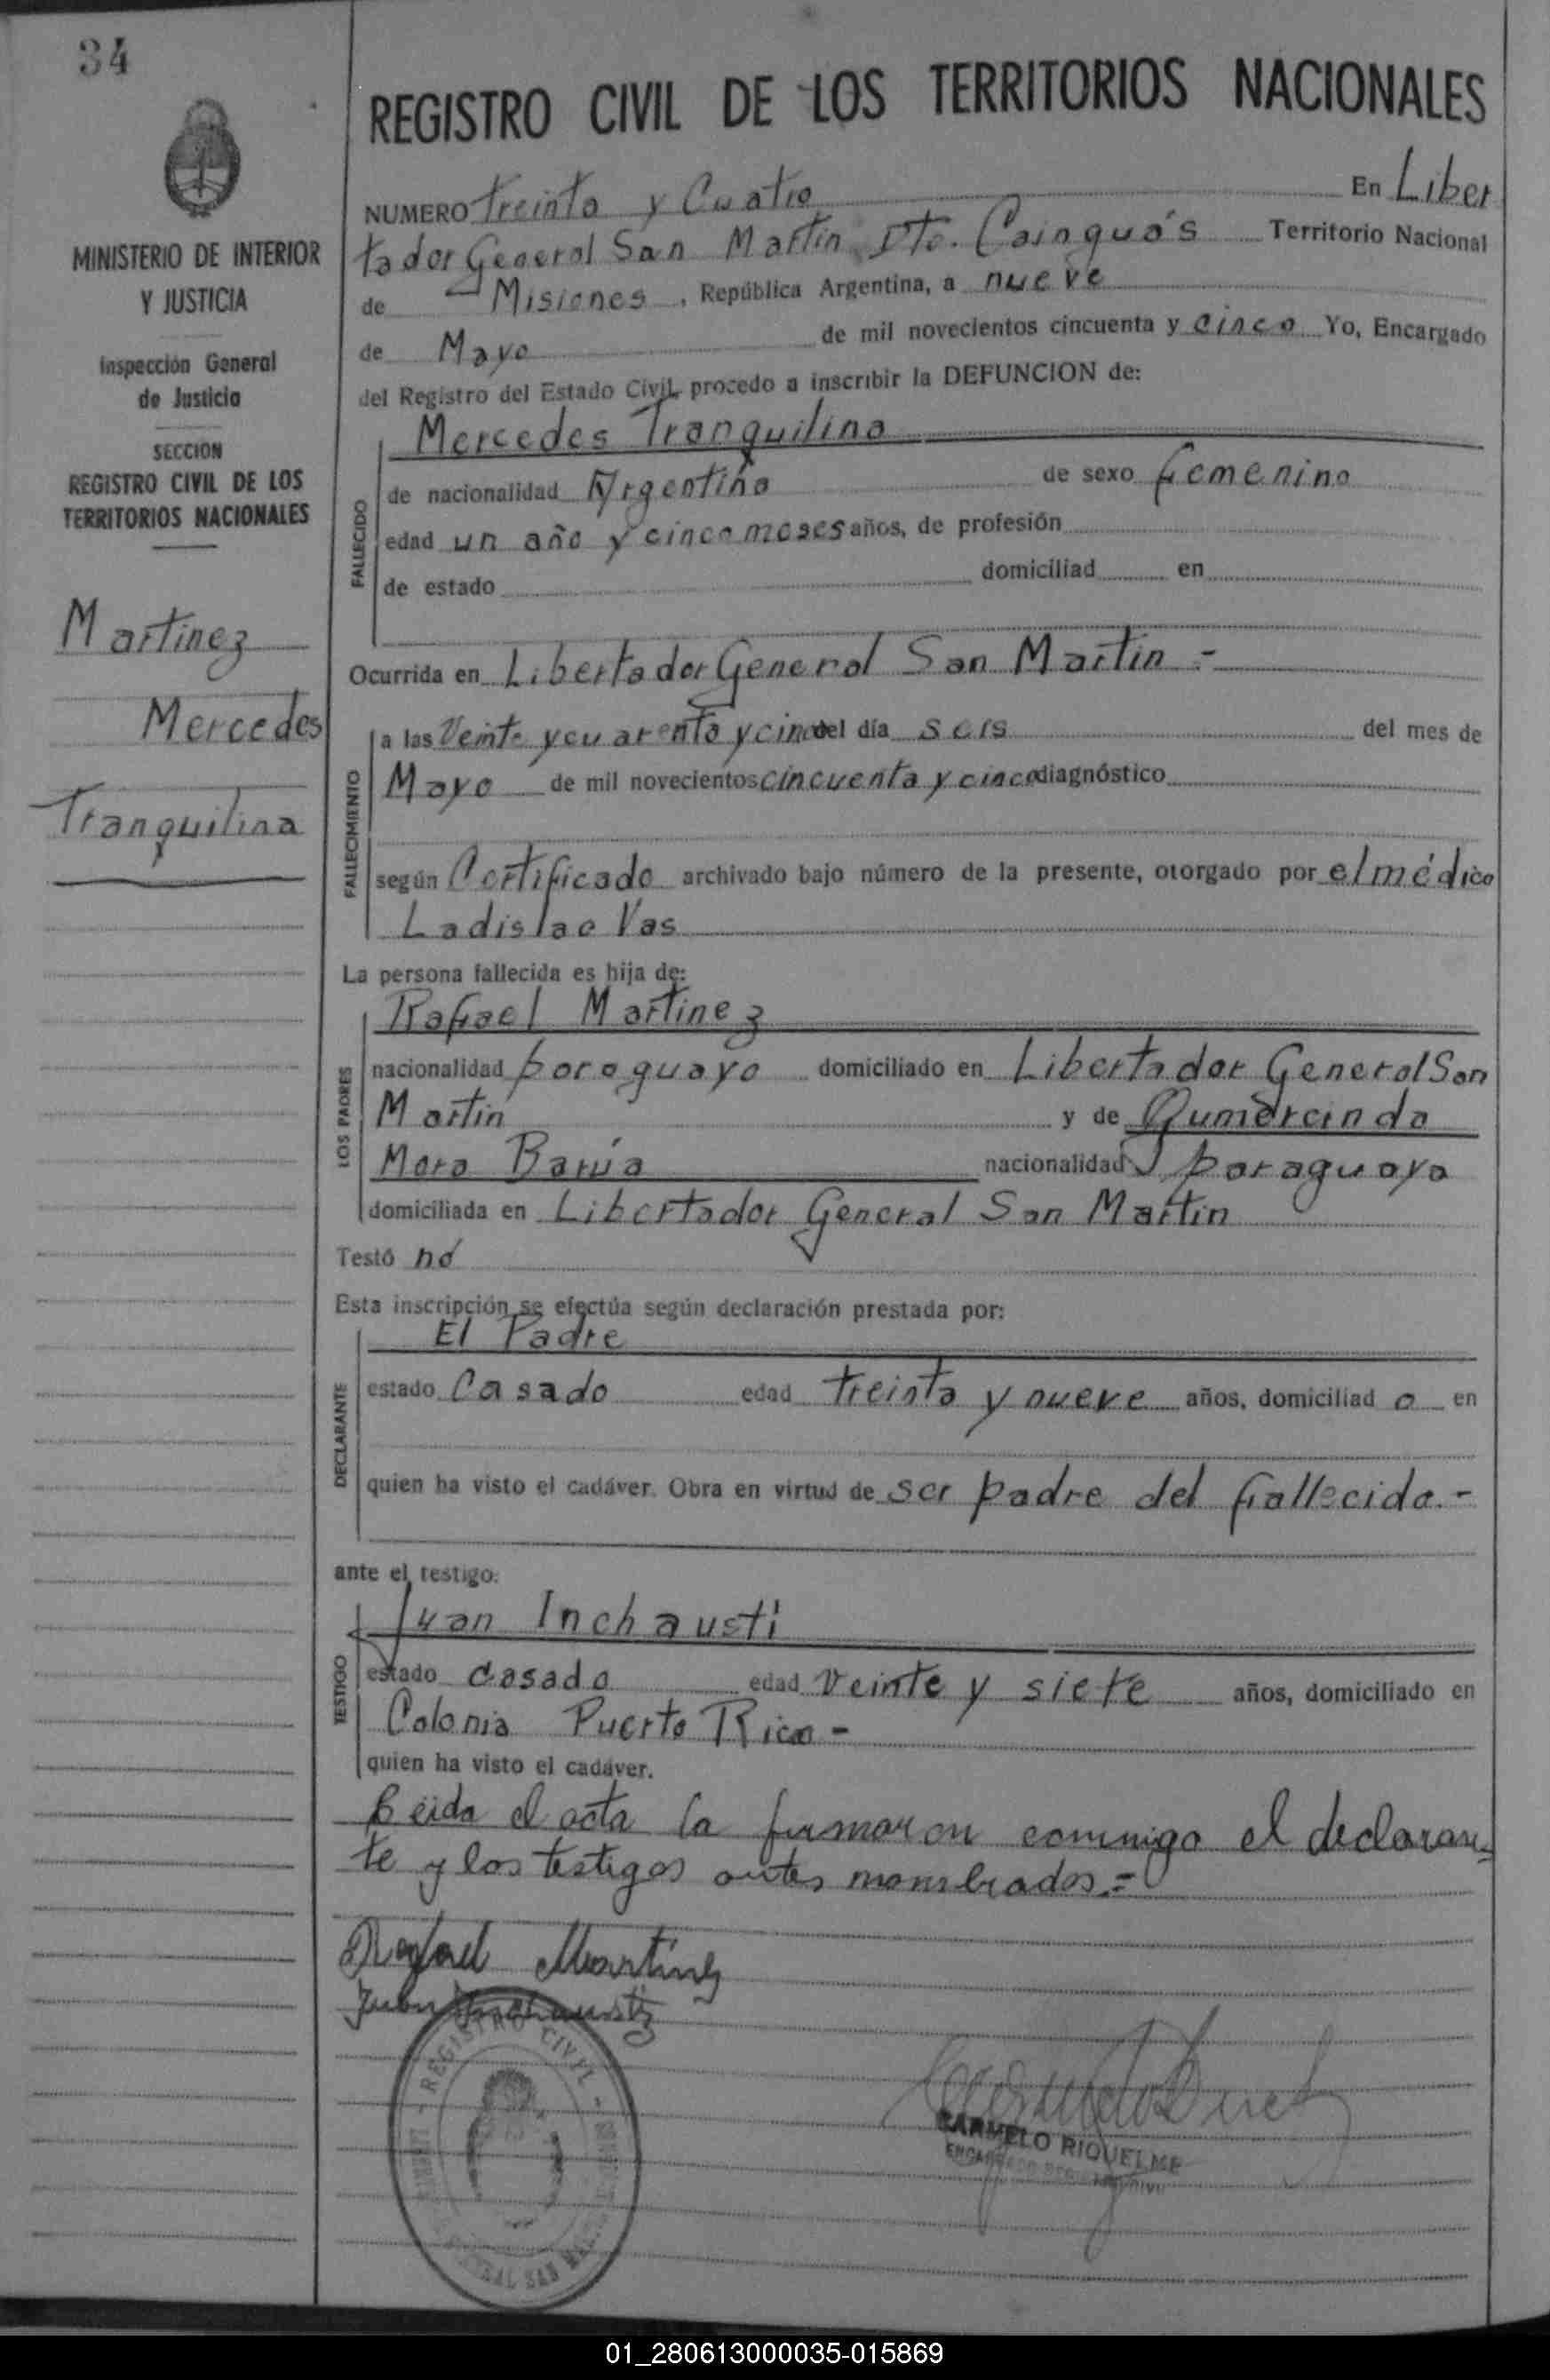 34
REGISTRO CIVIL DE LOS TERRITORIOS NACIONALES
MINISTERIO DE INTERIOR
Y JUSTICIA
Inspección General
de Justicia
SECCION
REGISTRO CIVIL DE LOS
TERRITORIOS NACIONALES
Martinez
Mercedes
Tranquilina
NUMERO treinta y Cuatro En Liber
tador General San Martin Dto. Cainguás Territorio Nacional
de Misiones, República Argentina, a nueve
de Mayo de mil novecientos cincuenta y cinco Yo, Encargado
del Registro del Estado Civil, procedo a inscribir la DEFUNCION de:
Mercedes Tranquilina
FALLECIDO
de nacionalidad Argentina de sexo femenino
edad un año y cinco meses años, de profesión
de estado domiciliad en
Ocurrida en Libertador General San Martin -
FALLECIMIENTO
a las Veinte y cuarenta y cinco del día seis del mes de
Mayo de mil novecientos cincuenta y cinco diagnóstico
según Certificado archivado bajo número de la presente, otorgado por el médico
Ladislao Vas
La persona fallecida es hija de:
LOS PADRES
Rafael Martinez
nacionalidad paraguayo domiciliado en Libertador General San
Martin y de Gumercinda
Mora Barúa nacionalidad paraguaya
domiciliada en Libertador General San Martin
Testó nó
Esta inscripción se efectúa según declaración prestada por:
DECLARANTE
El Padre
estado Casado edad treinta y nueve años, domiciliad o en
quien ha visto el cadáver. Obra en virtud de ser padre del fallecido.-
ante el testigo:
TESTIGO
Juan Inchausti
estado casado edad veinte y siete años, domiciliado en
Colonia Puerto Rico -
quien ha visto el cadáver.
Leida el acta la firmaron conmigo el declaran=
te y los testigos antes mombrados.=
Rafael Martinez
Juan Inchausti
REGISTRO CIVIL
GENERAL SAN
CARMELO RIQUELME
ENCARGADO
01_280613000035-015869